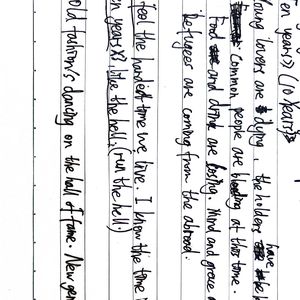 Ten years) (10 years)
Young lovers are dying, the holders have be
Common people are bleeding at this time.
and drink are losing. Mind and brave
Refugees are coming from the abroad.
feel the hardest time we live. I know the time
en years X3 like the hell, (run the hell)
old fashion's dancing on the hall of fame. New gen